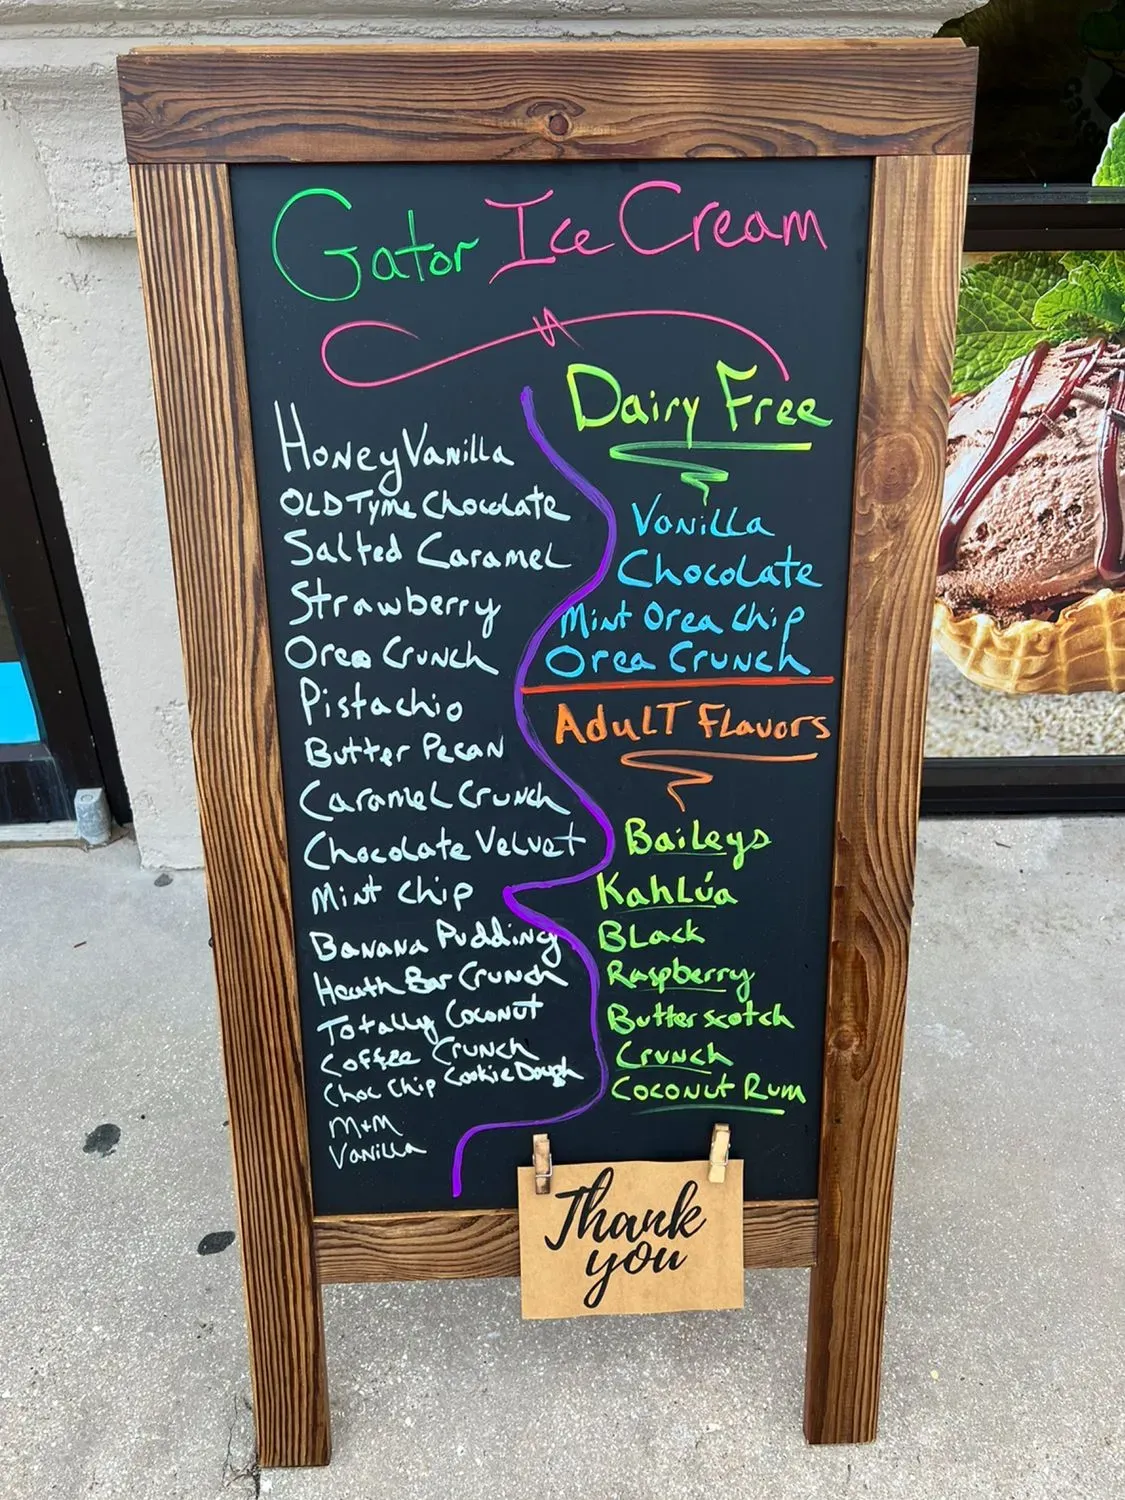 Gator Ice Cream
Honey Vanilla
OLD Tyme Chocolate
Salted Caramel
Strawberry
Oreo Crunch
Pistachio
Butter Pecan
Caramel Crunch
Chocolate Velvet
Mint Chip
Banana Pudding
Heath Bar Crunch
Totally Coconut
Coffee Crunch
Choc Chip Cookie Dough
M+M
Vanilla
Dairy Free
Vanilla
Chocolate
Mint Orea Chip
Orea Crunch
Adult Flavors
Baileys
Kahlúa
Black
Raspberry
Butterscotch
Crunch
Coconut Rum
Thank
you